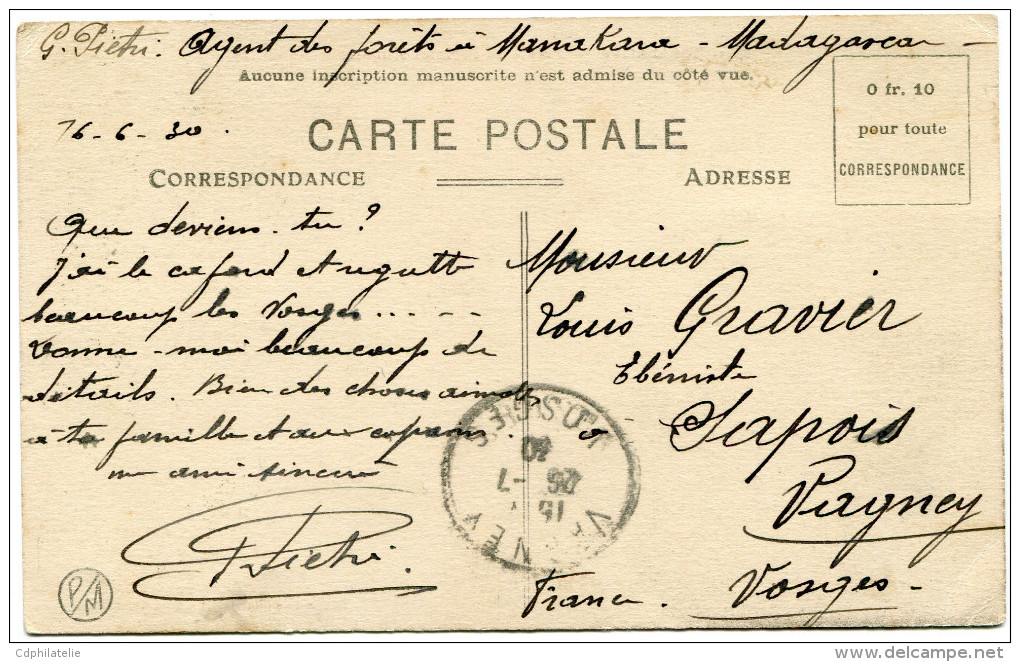 G. Pietri. Agent des forêts à Manakara - Madagascar -
Aucune inscription manuscrite n'est admise du côté vue.
16-6-30.
CARTE POSTALE
CORRESPONDANCE
ADRESSE
0 fr. 10
pour toute
CORRESPONDANCE
Que deviens-tu ?
J'ai le cafard et regrette
beaucoup les Vosges.....
Donne-moi beaucoup de
détails. Bien des choses aimables
à ta famille et aux copains.
un ami sincère
Pietri.
Monsieur
Louis Gravier
Ebéniste
à Sapois
Vagney
Vosges -
France.
VAGNEY
15
26 -7
30
VOSGES
P/M
Cdphilatelie
delcampe.net